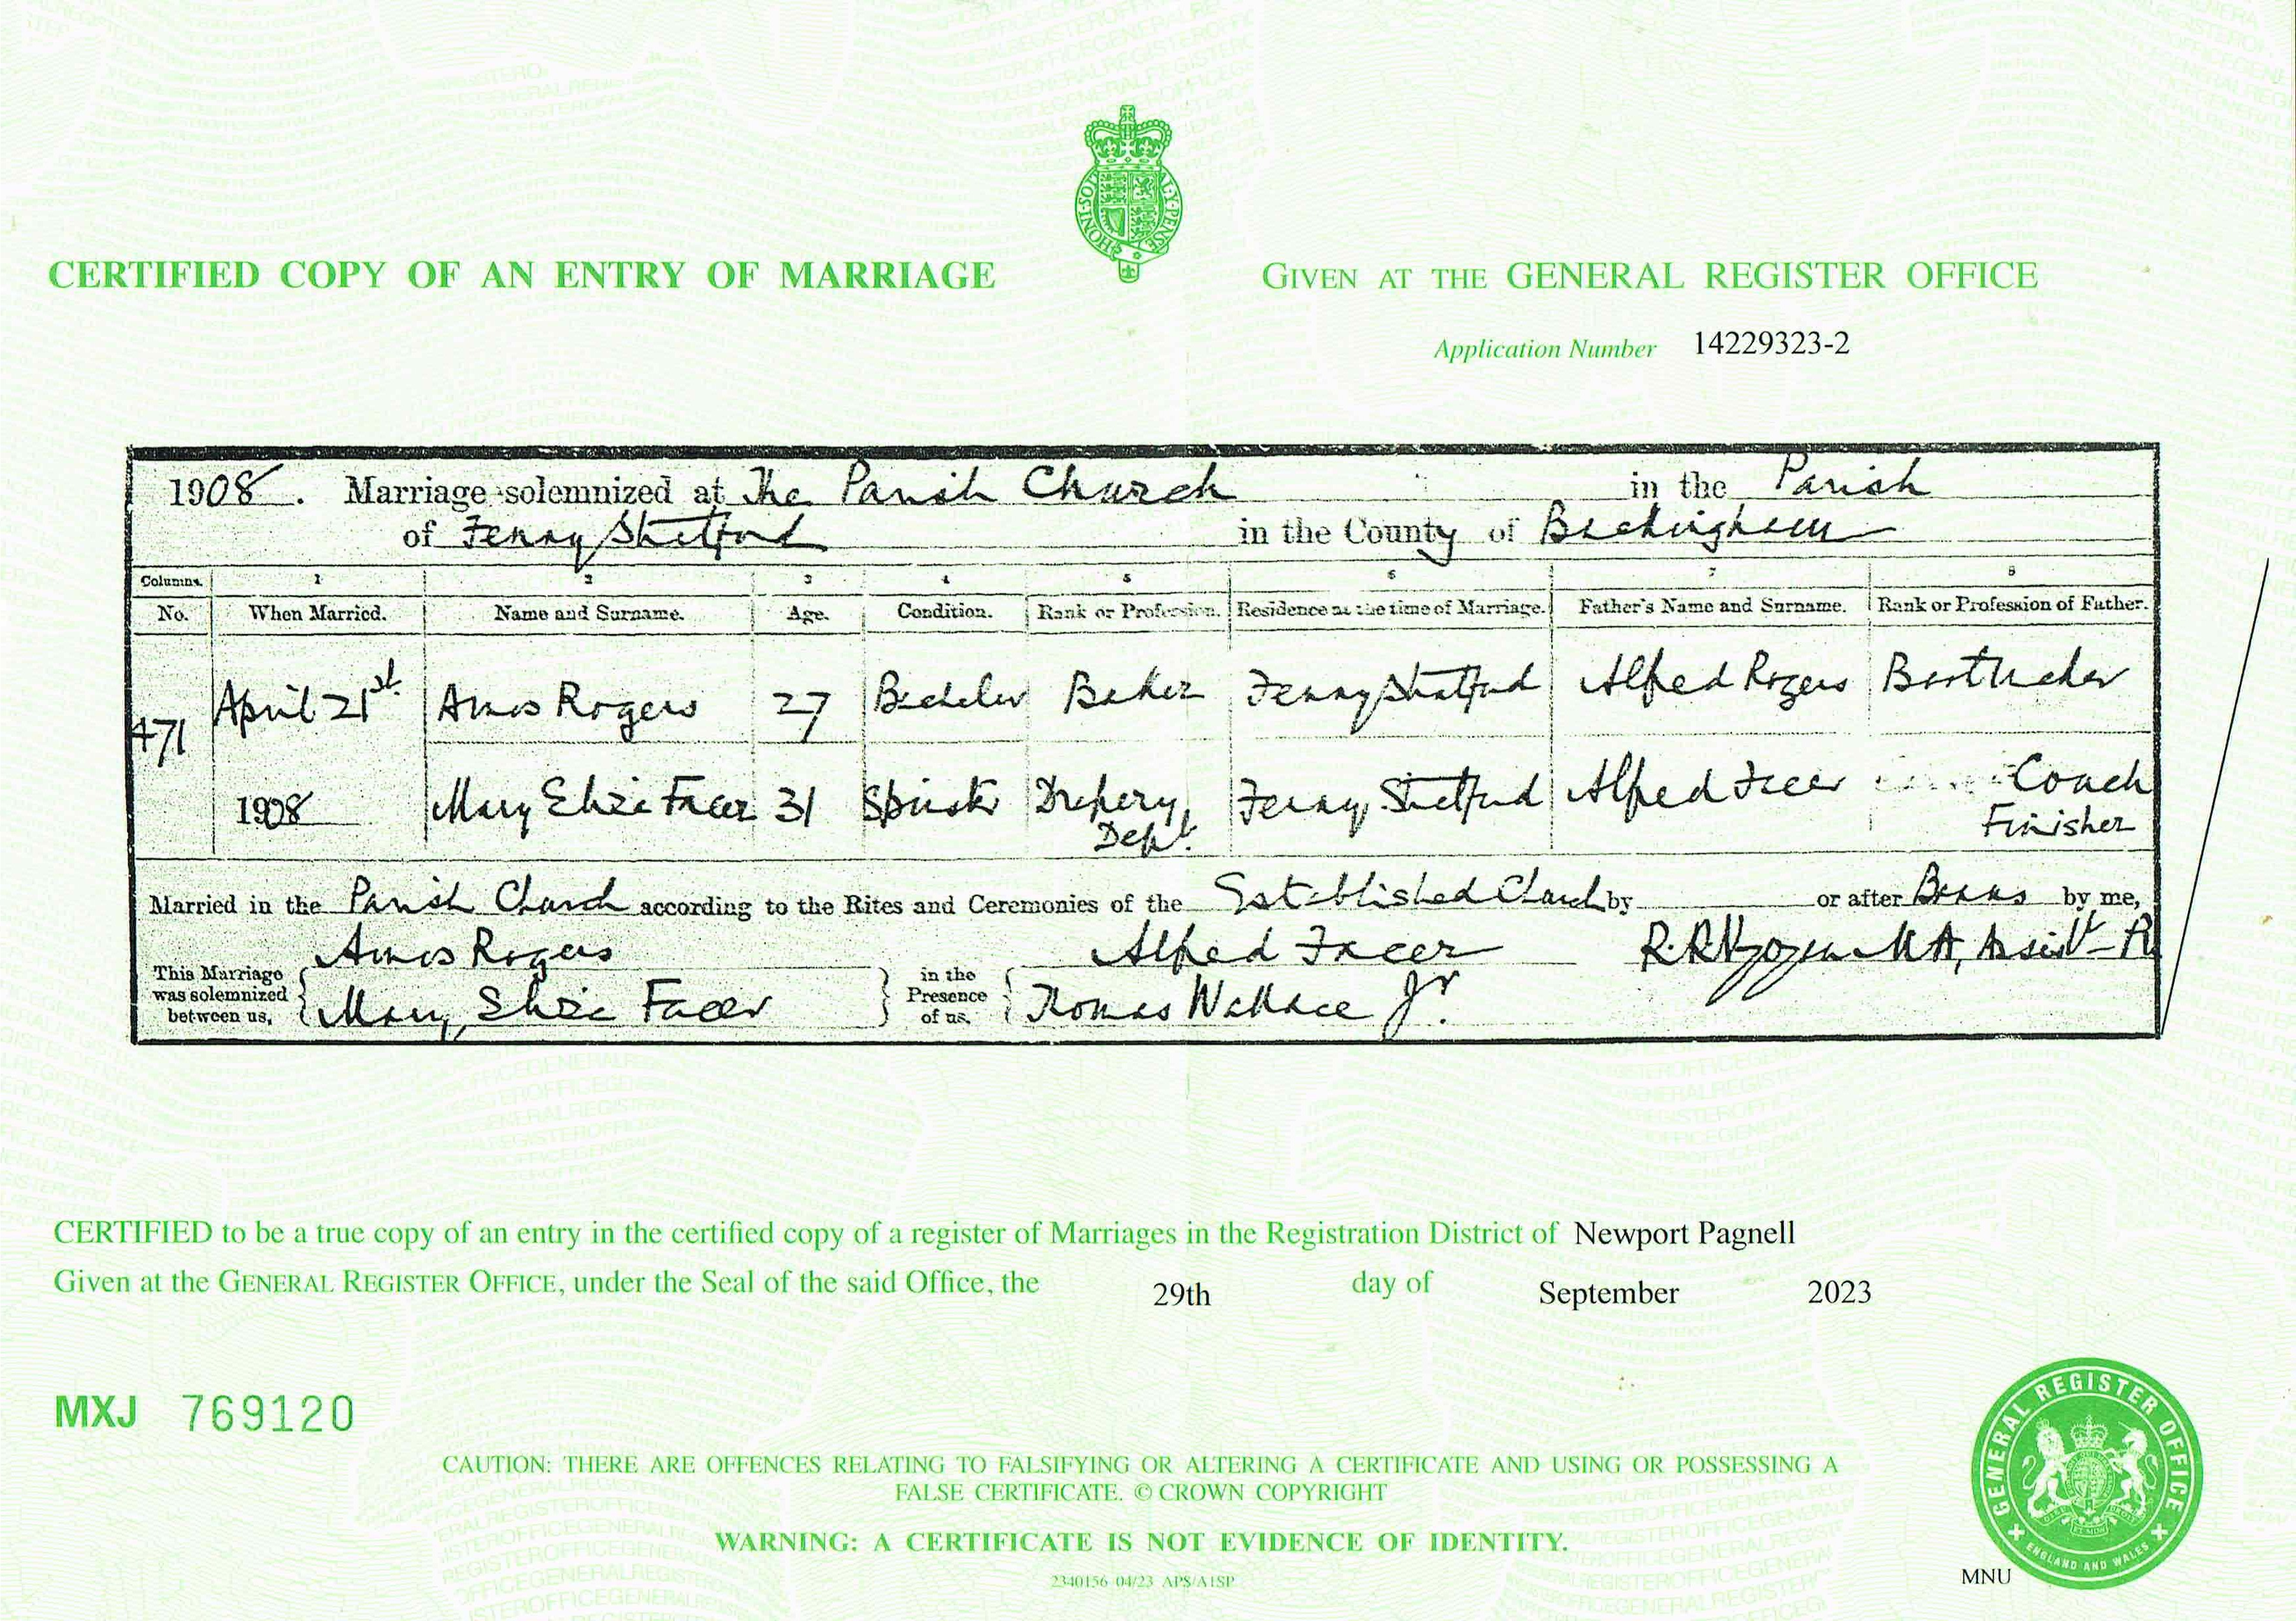 HONI·SOIT Y·PENSE
CERTIFIED COPY OF AN ENTRY OF MARRIAGE
GIVEN AT THE GENERAL REGISTER OFFICE
Application Number 14229323-2
1908. Marriage solemnized at The Parish Church in the Parish
of Fenny Stratford in the County of Buckingham
Columns. 1 2 3 4 5 6 7 8
No. When Married. Name and Surname. Age. Condition. Rank or Profession. Residence at the time of Marriage. Father's Name and Surname. Rank or Profession of Father.
471 April 21st Amos Rogers 27 Bachelor Baker Fenny Stratford Alfred Rogers
1908 Mary Elize Facer 31 Spinster Drapery Dept. Fenny Stratford Alfred Facer Coach Finisher
Married in the Parish Church according to the Rites and Ceremonies of the Established Church by or after Banns by me,
This Marriage was solemnized between us, Amos Rogers in the Presence of us, Alfred Facer
Mary Elize Facer Thomas Wallace Jr.
CERTIFIED to be a true copy of an entry in the certified copy of a register of Marriages in the Registration District of Newport Pagnell
Given at the GENERAL REGISTER OFFICE, under the Seal of the said Office, the 29th day of September 2023
MXJ 769120
CAUTION: THERE ARE OFFENCES RELATING TO FALSIFYING OR ALTERING A CERTIFICATE AND USING OR POSSESSING A
FALSE CERTIFICATE. © CROWN COPYRIGHT
WARNING: A CERTIFICATE IS NOT EVIDENCE OF IDENTITY.
2340156 04/23 APS/A1SP
MNU
GENERAL REGISTER OFFICE
ENGLAND AND WALES